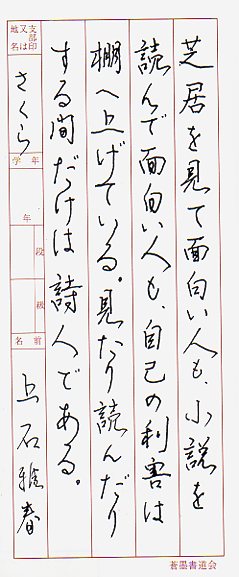 芝居を見て面白い人も、小説を
読んで面白い人も、自己の利害は
棚へ上げている。見たり読んだり
する間だけは詩人である。
支部印
又は
地名
さくら
学年
年
段
級
名前
上石雅春
蒼墨書道会